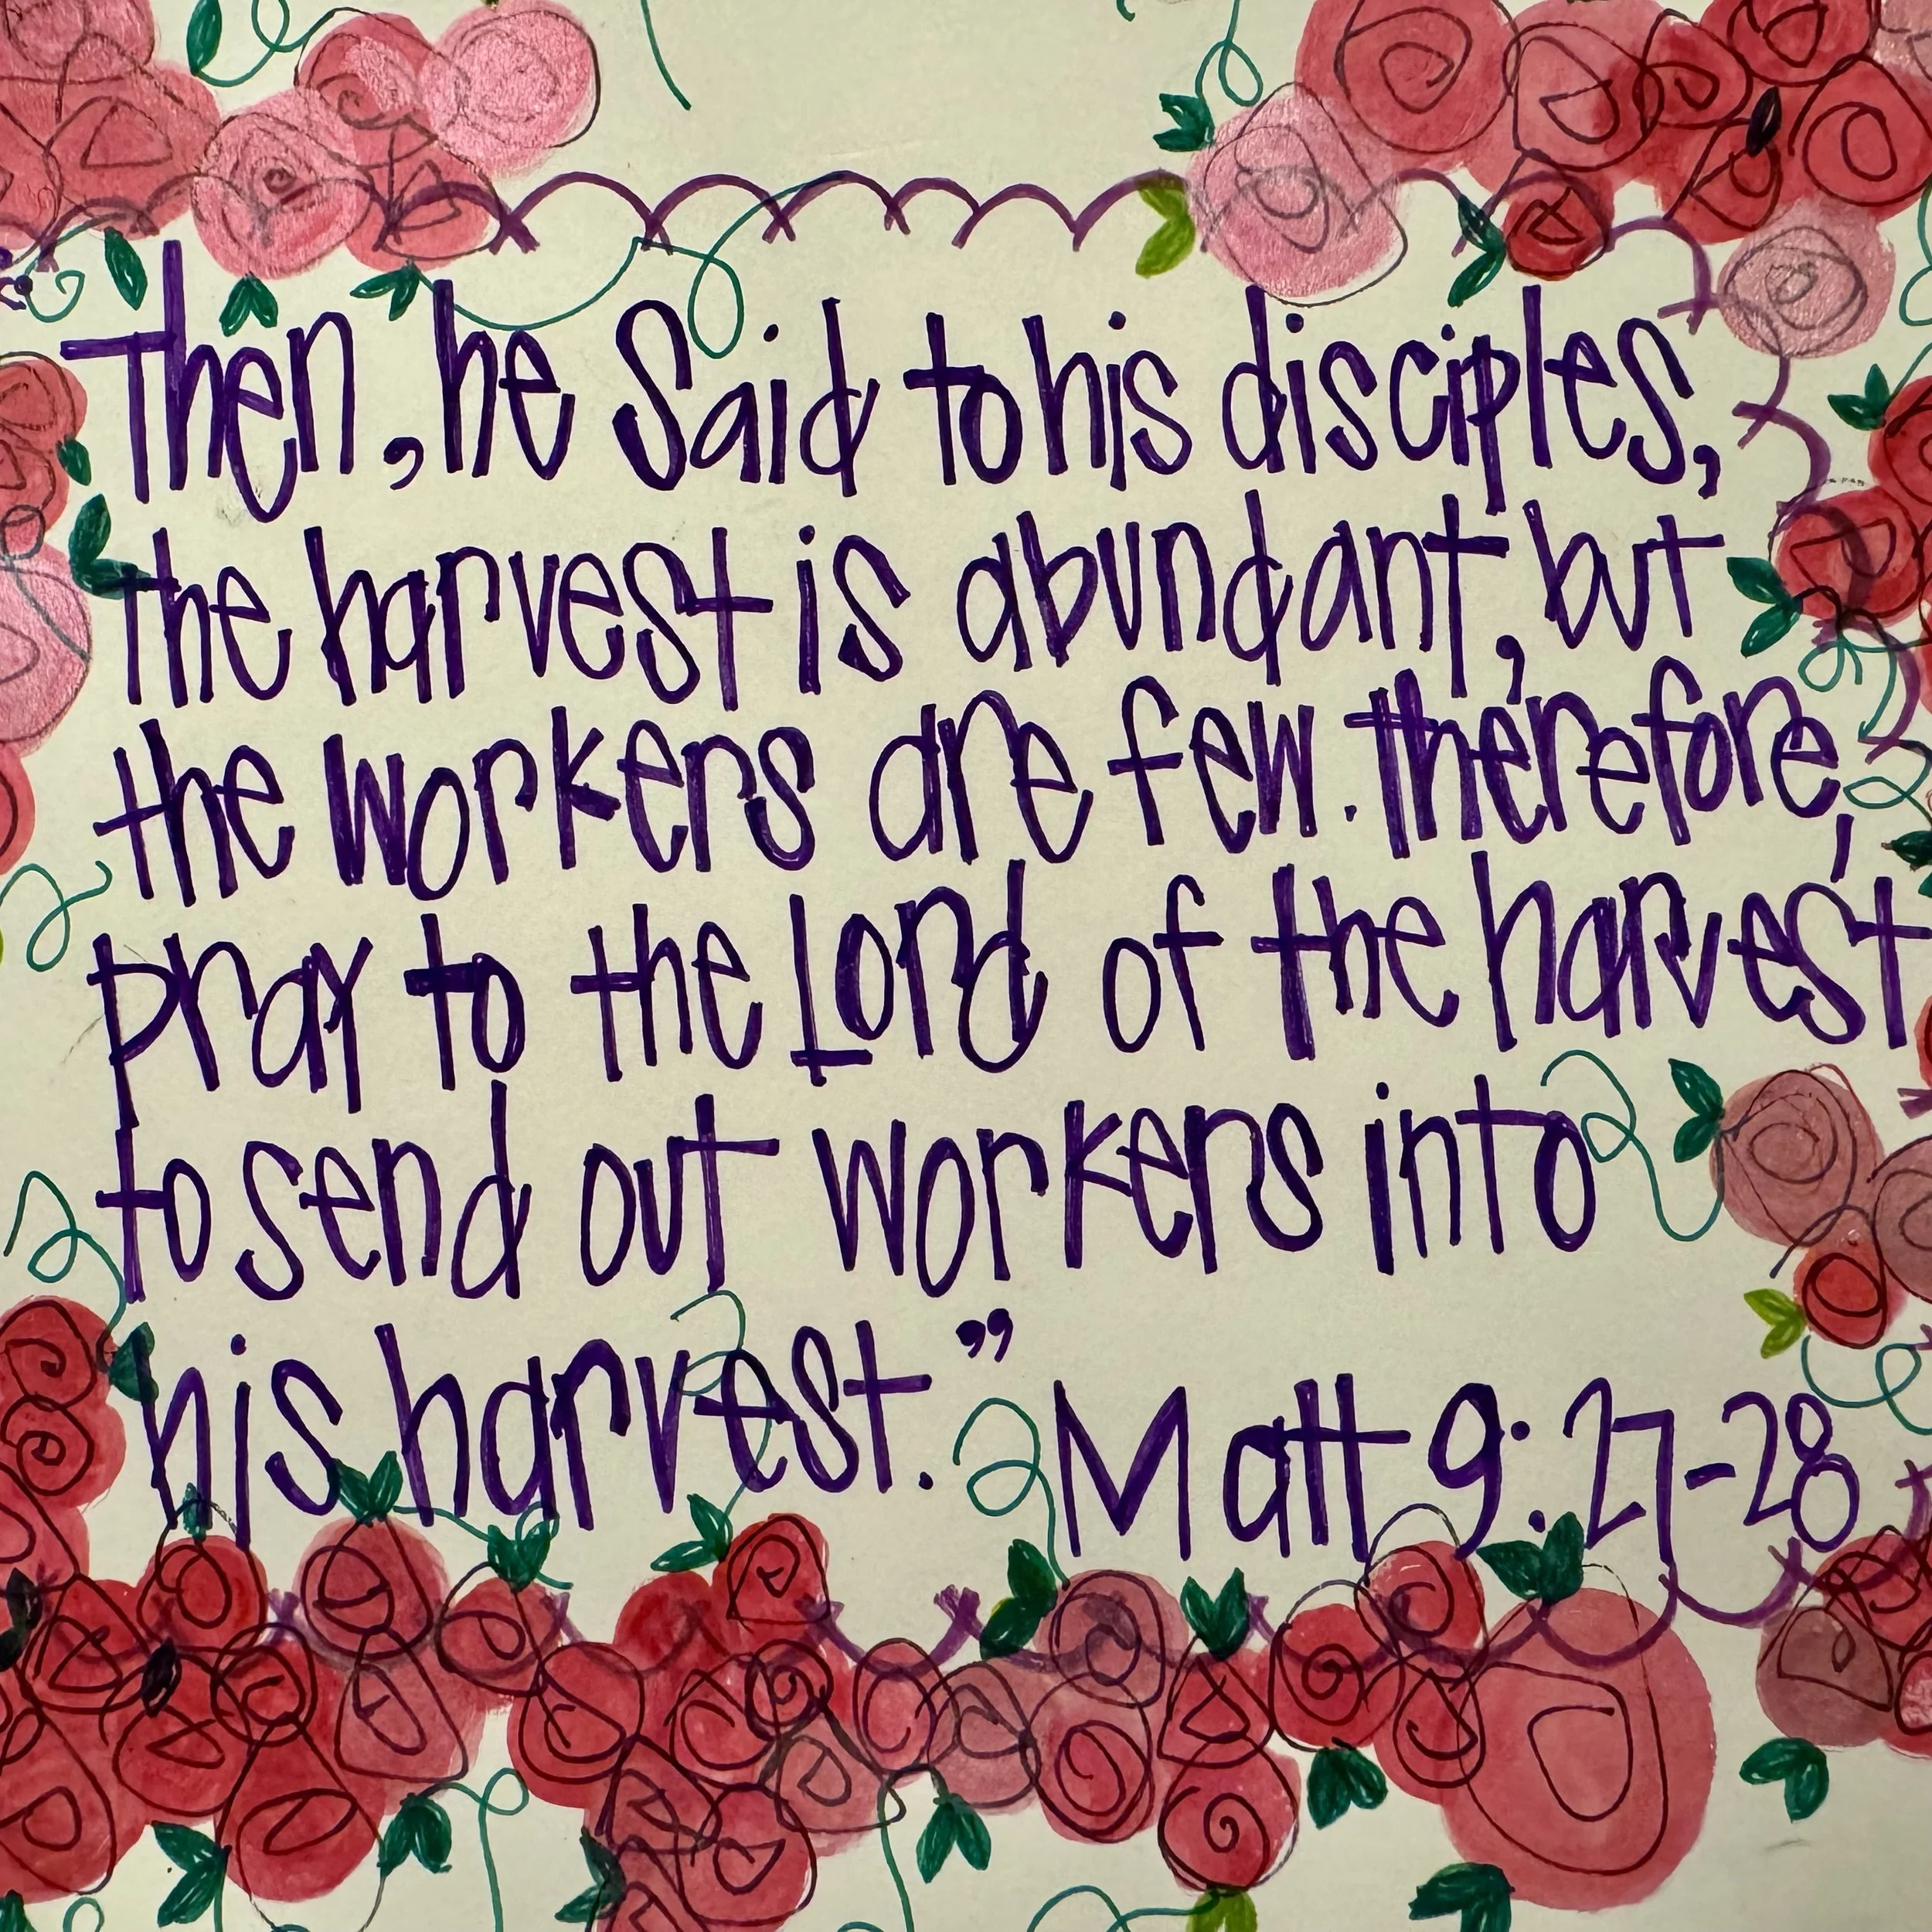 Then, he Said to his disciples,
the harvest is abundant, but
the workers are few. Therefore,
pray to the Lord of the harvest
to send out workers into
his harvest.”
Matt 9:27-28